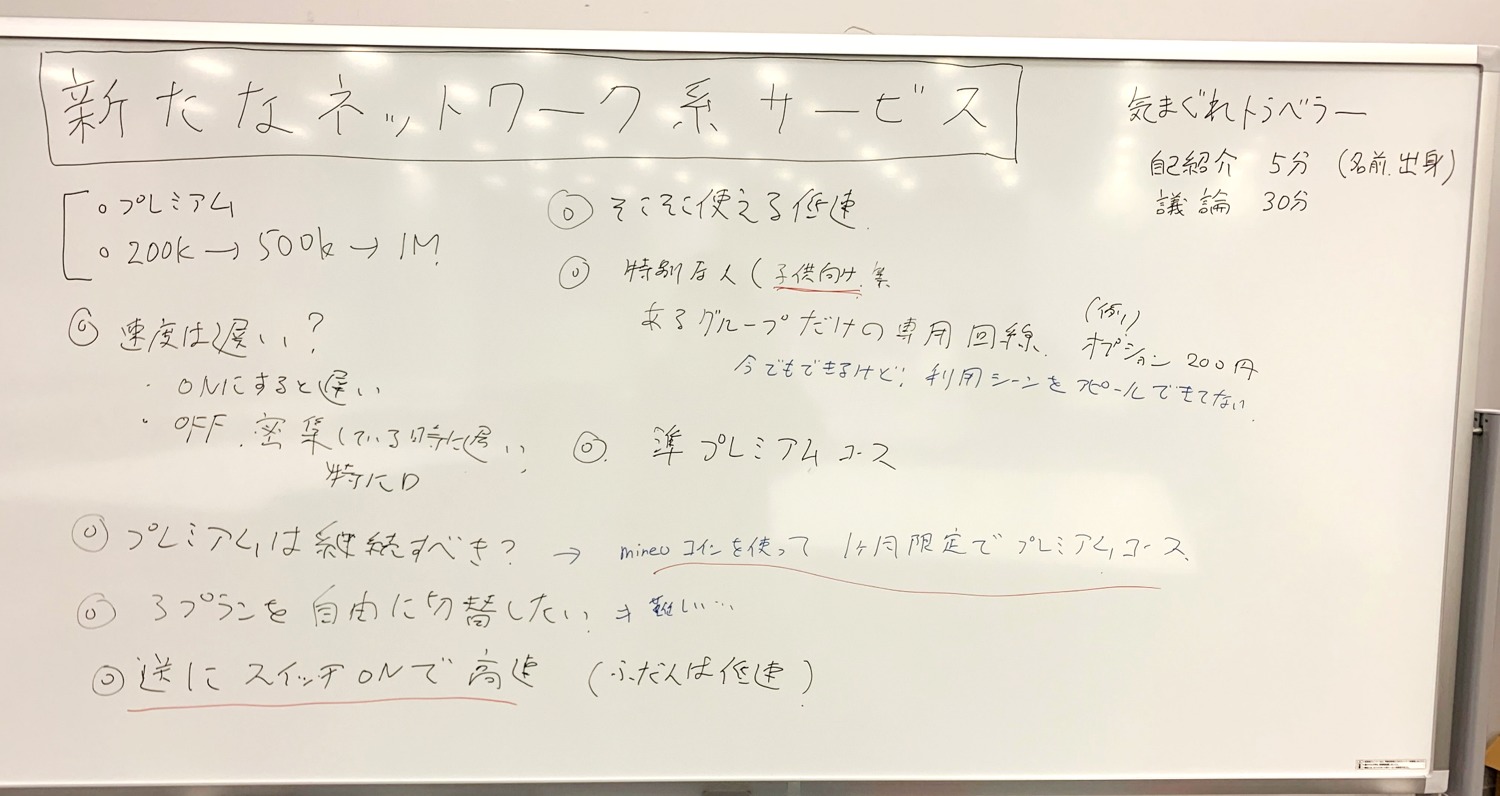 新たなネットワーク系サービス
気まぐれトラベラー
自己紹介 5分 (名前.出身)
議論 30分
○プレミアム
○200k→500k→1M?
◎速度は遅い?
・ONにすると遅い
・OFF.密集している時に遅い
特にD
◎そこそこ使える低速
◎特別な人(子供向け.
あるグループだけの専用回線. (例)オプション200円
今でもできるけど、利用シーンをアピールできてない
◎準プレミアムコース
◎プレミアムは継続すべき? → mineoコインを使って 1ヶ月限定でプレミアムコース
◎3プランを自由に切替したい → 難しい…
◎逆にスイッチONで高速 (ふだんは低速)